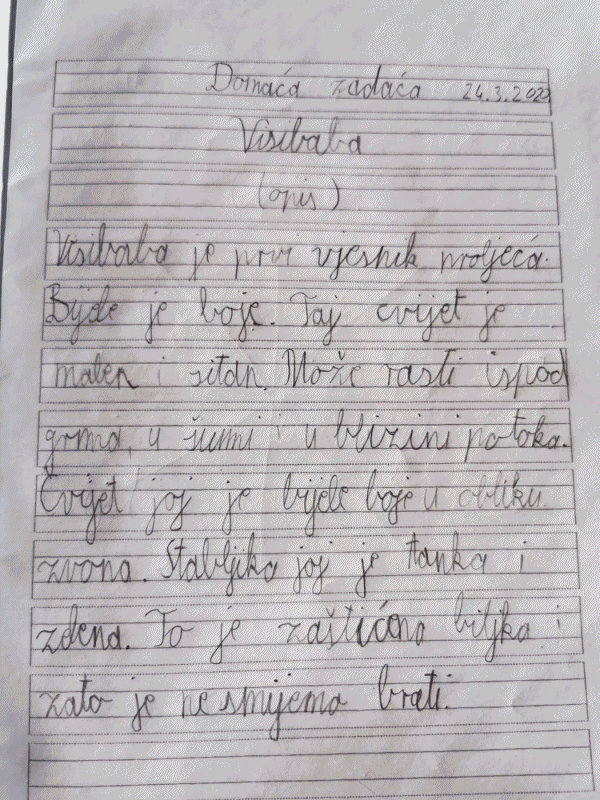 Domaća zadaća 24.3.2022
Visibaba
(opis)
Visibaba je prvi vjesnik proljeća.
Bijele je boje. Taj cvijet je
malen i sitan. Može rasti ispod
grma, u šumi i u blizini potoka.
Cvijet joj je bijele boje u obliku
zvona. Stabljika joj je tanka i
zelena. To je zaštićena biljka i
zato je ne smijemo brati.